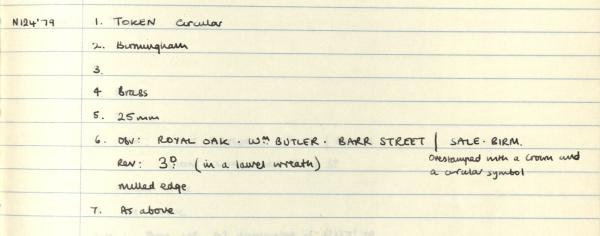 N124'79 1. TOKEN Circular
2. Birmingham
3.
4 Brass
5. 25mm
6. Obv: ROYAL OAK · Wm BUTLER · BARR STREET | SALE · BIRM.
Overstamped with a crown and
a circular symbol
Rev: 3D (in a laurel wreath)
milled edge
7. As above